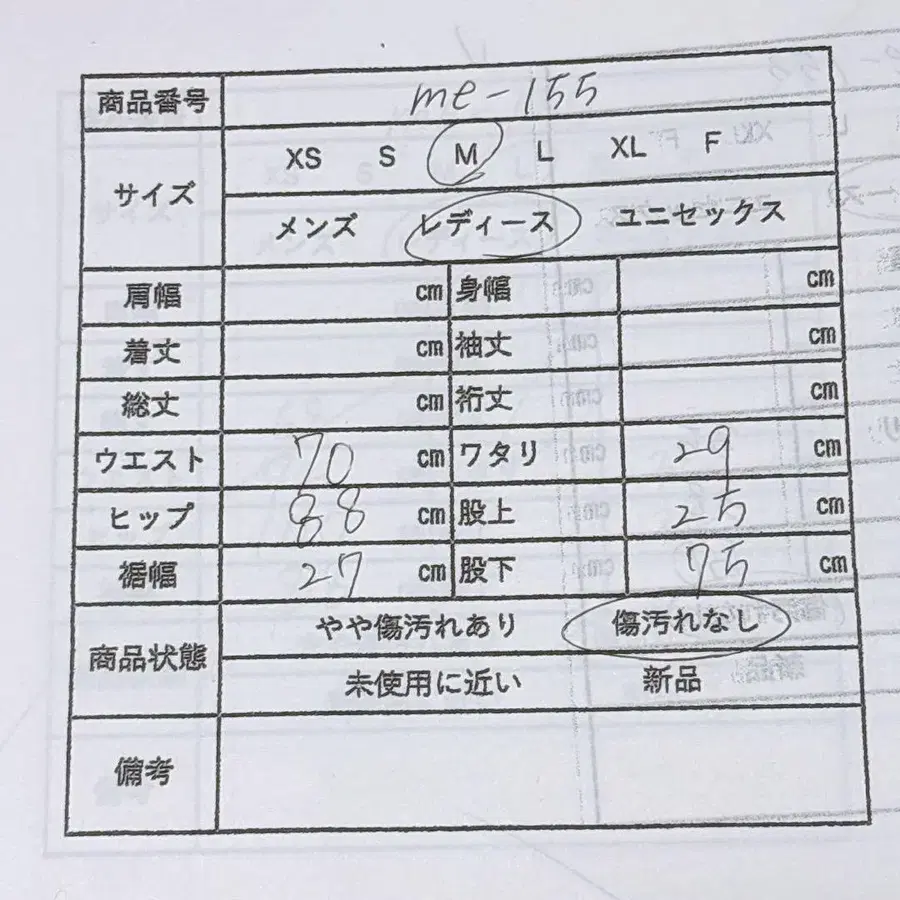 商品番号 me-155
サイズ XS S M L XL F
メンズ レディース ユニセックス
肩幅 cm 身幅 cm
着丈 cm 袖丈 cm
総丈 cm 裄丈 cm
ウエスト 70 cm ワタリ 29 cm
ヒップ 88 cm 股上 25 cm
裾幅 27 cm 股下 75 cm
商品状態 やや傷汚れあり 傷汚れなし
未使用に近い 新品
備考